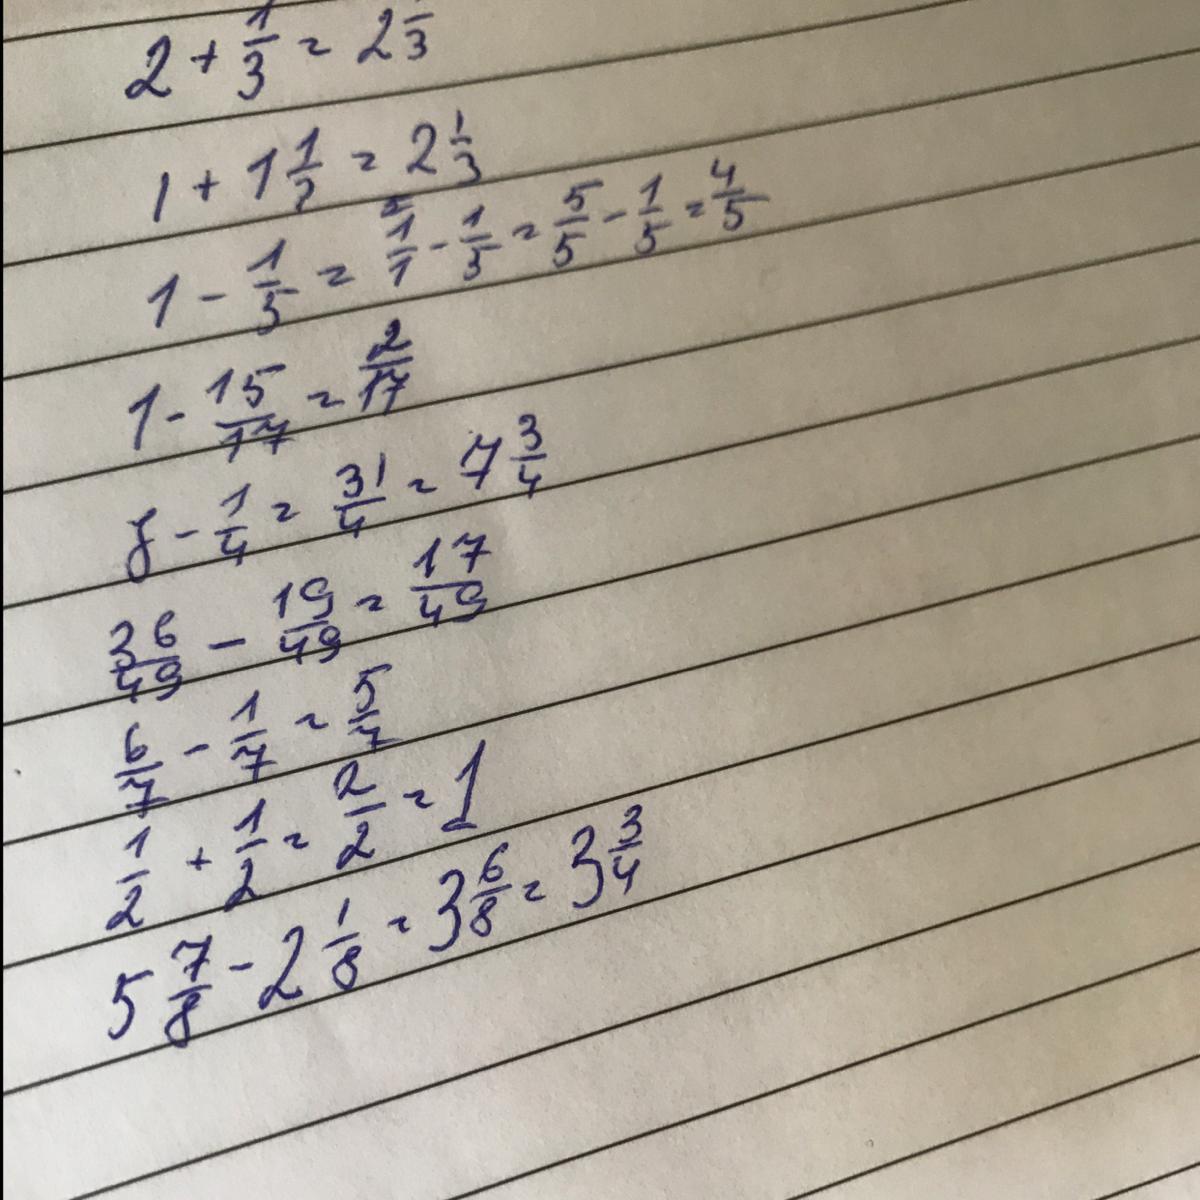 2 + 1/3 = 2 1/3
1 + 1 1/3 = 2 1/3
1 - 1/5 = 1/1 - 1/5 = 5/5 - 1/5 = 4/5
1 - 15/17 = 2/17
8 - 1/4 = 31/4 = 7 3/4
36/49 - 19/49 = 17/49
6/7 - 1/7 = 5/7
1/2 + 1/2 = 2/2 = 1
5 7/8 - 2 1/8 = 3 6/8 = 3 3/4